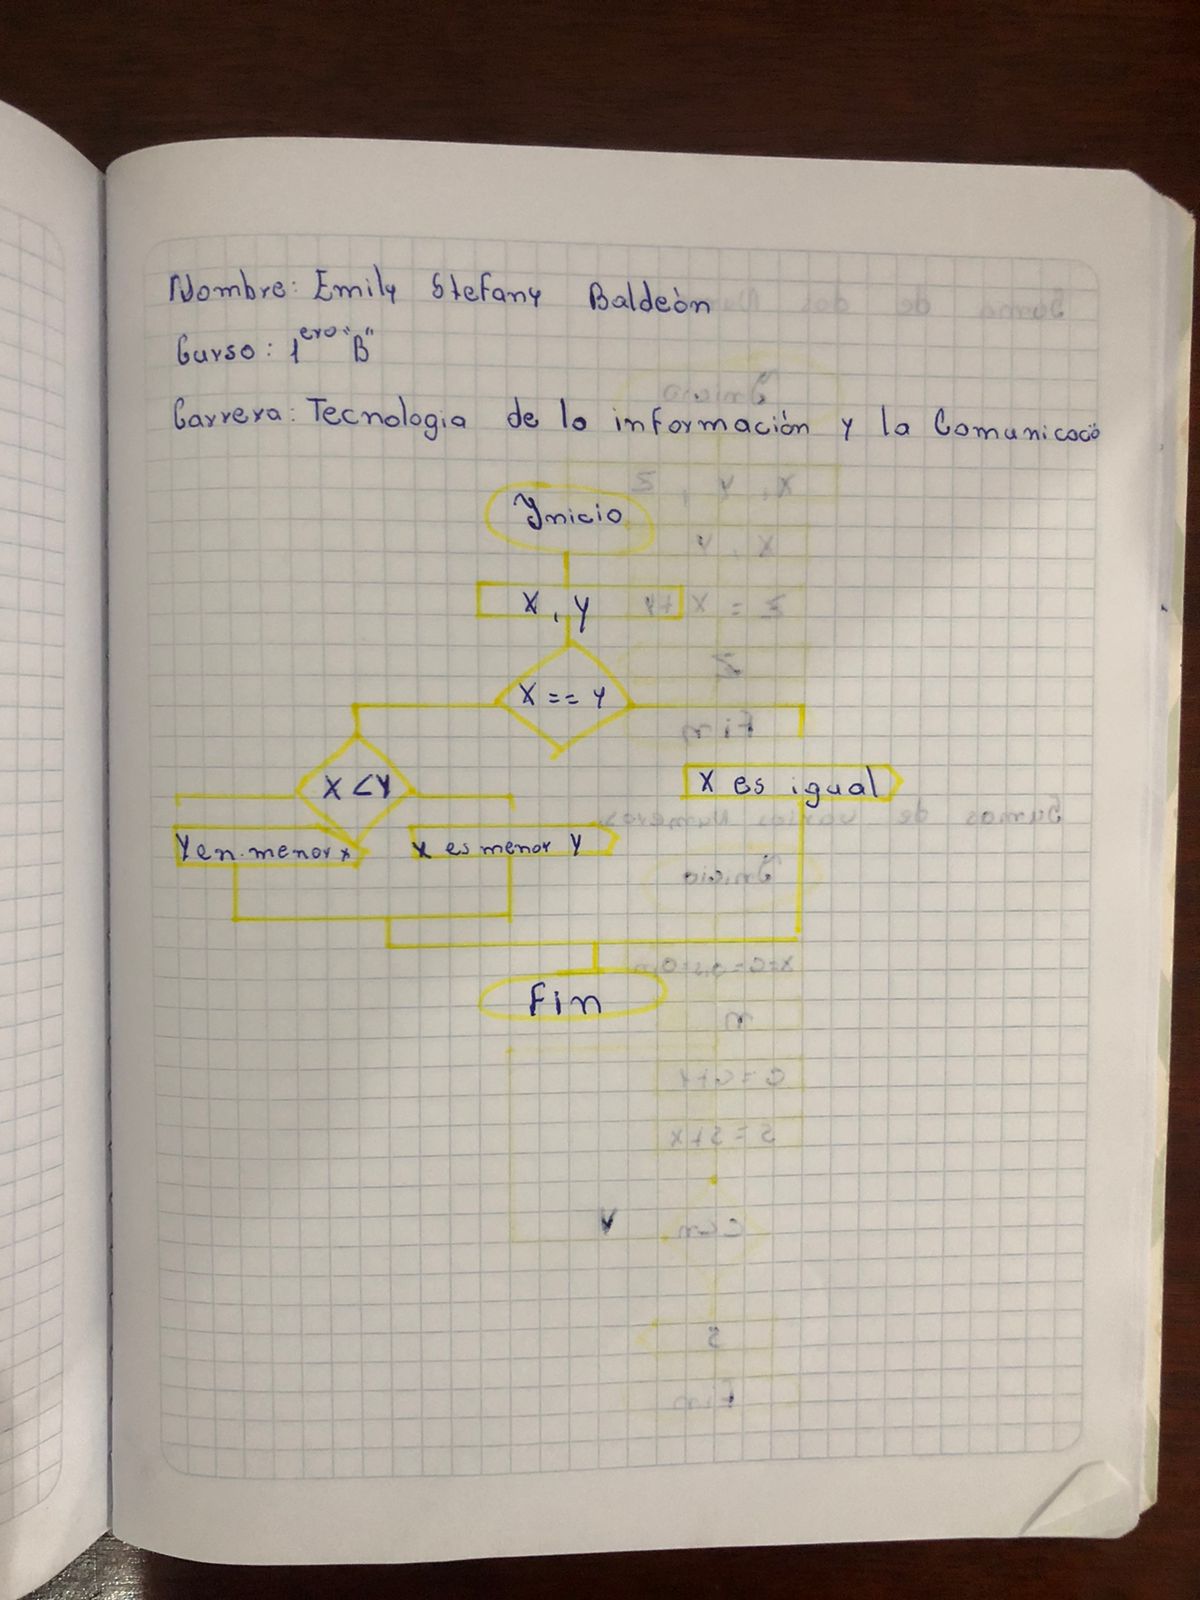 Nombre: Emily Stefany Baldeón
Curso: 1ero "B"
Carrera: Tecnologia de la información y la Comunicació
Inicio
X, Y
X == Y
X < Y
X es igual
Y en menor x
x es menor Y
Fin